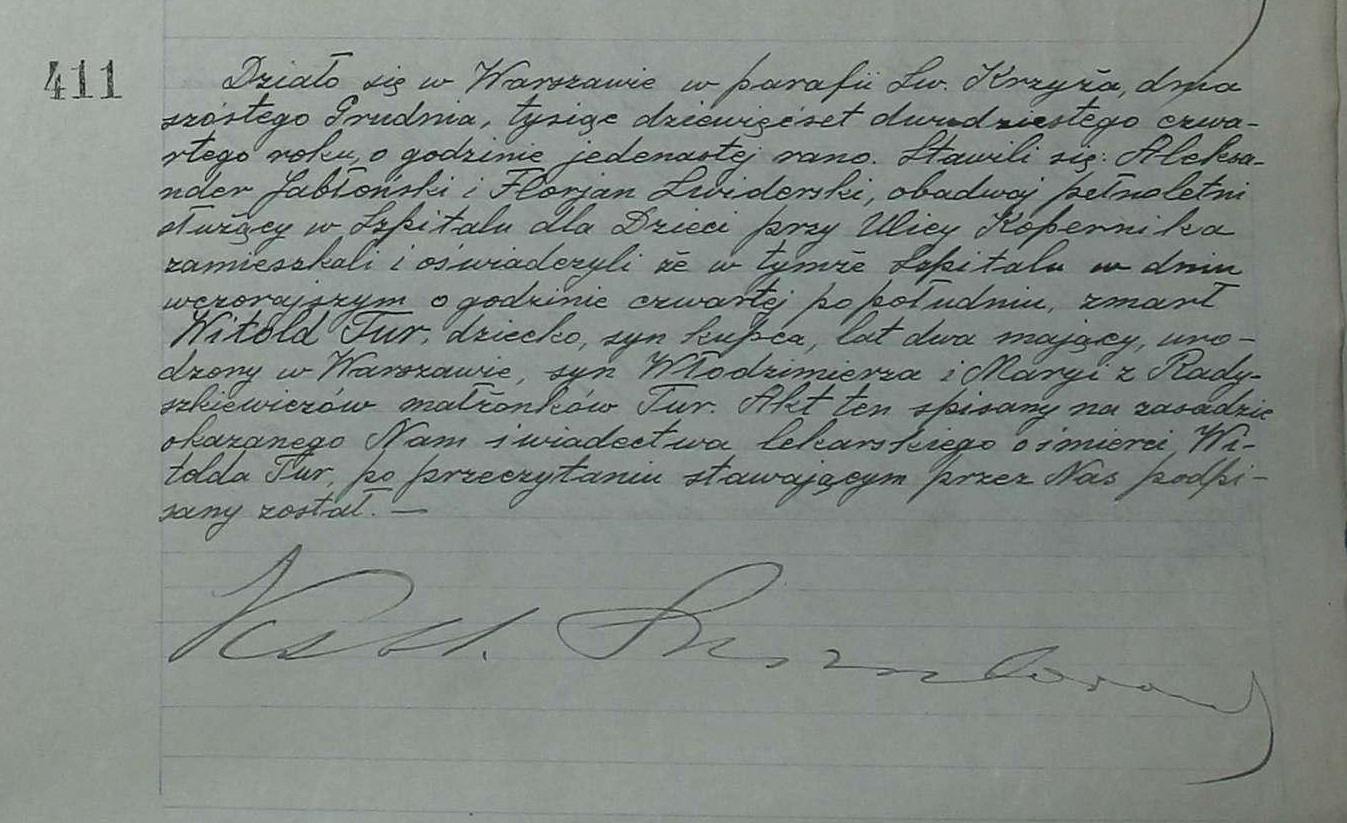 411
Działo się w Warszawie w parafii Św. Krzyża, dnia
szóstego Grudnia, tysiąc dziewięćset dwudziestego czwa-
rtego roku, o godzinie jedenastej rano. Stawili się: Aleksa-
nder Jabłoński i Florjan Świderski, obadwaj pełnoletni
służący w Szpitalu dla Dzieci przy Ulicy Kopernika
zamieszkali i oświadczyli że w tymże Szpitalu w dniu
wczorajszym o godzinie czwartej po południu, zmarł
Witold Tur, dziecko, syn kupca, lat dwa mający, uro-
dzony w Warszawie, syn Włodzimierza i Maryi z Rady-
szkiewiczów małżonków Tur. Akt ten spisany na zasadzie
okazanego Nam świadectwa lekarskiego o śmierci Wi-
tolda Tur, po przeczytaniu stawającym przez Nas podpi-
sany został. —